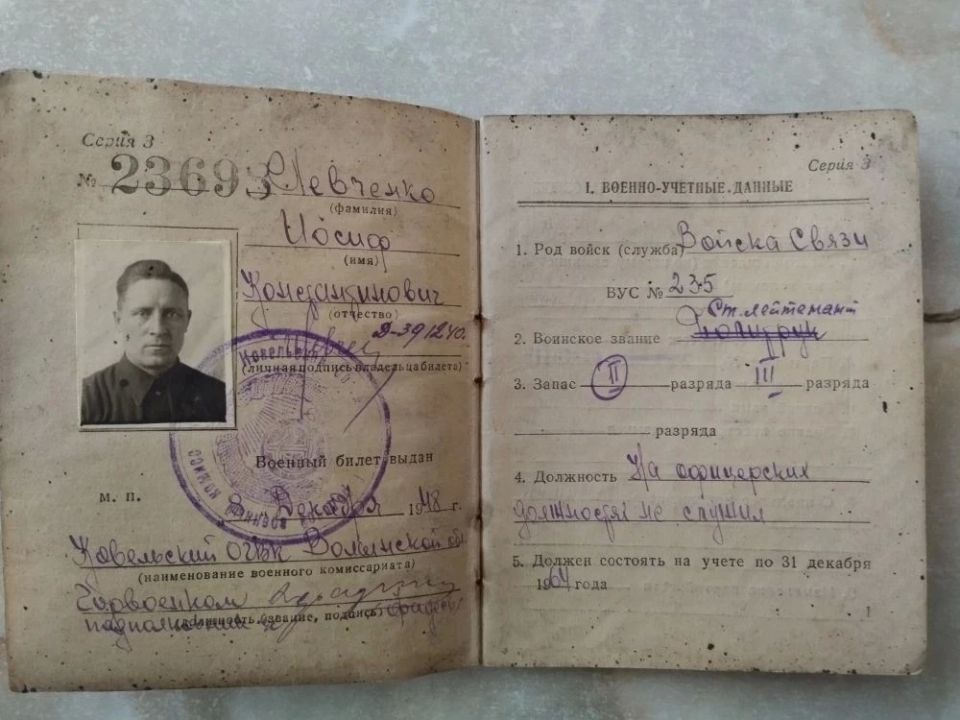 Серия 3
№ 23693 Шевченко
(фамилия)
Иосиф
(имя)
Константинович
(отчество)
(личная подпись владельца билета)
Военный билет выдан
М. П.
Декабря 1948 г.
Ковельский ОГВК Волынской обл
(наименование военного комиссариата)
Горвоенком
подполковник
(должность, звание, подпись)
Серия 3
1. ВОЕННО-УЧЕТНЫЕ ДАННЫЕ
1. Род войск (служба) Войска Связи
ВУС № 235
Ст. лейтенант
2. Воинское звание
3. Запас II разряда III разряда
разряда
4. Должность На офицерских
должностях не служил
5. Должен состоять на учете по 31 декабря
1964 года
1